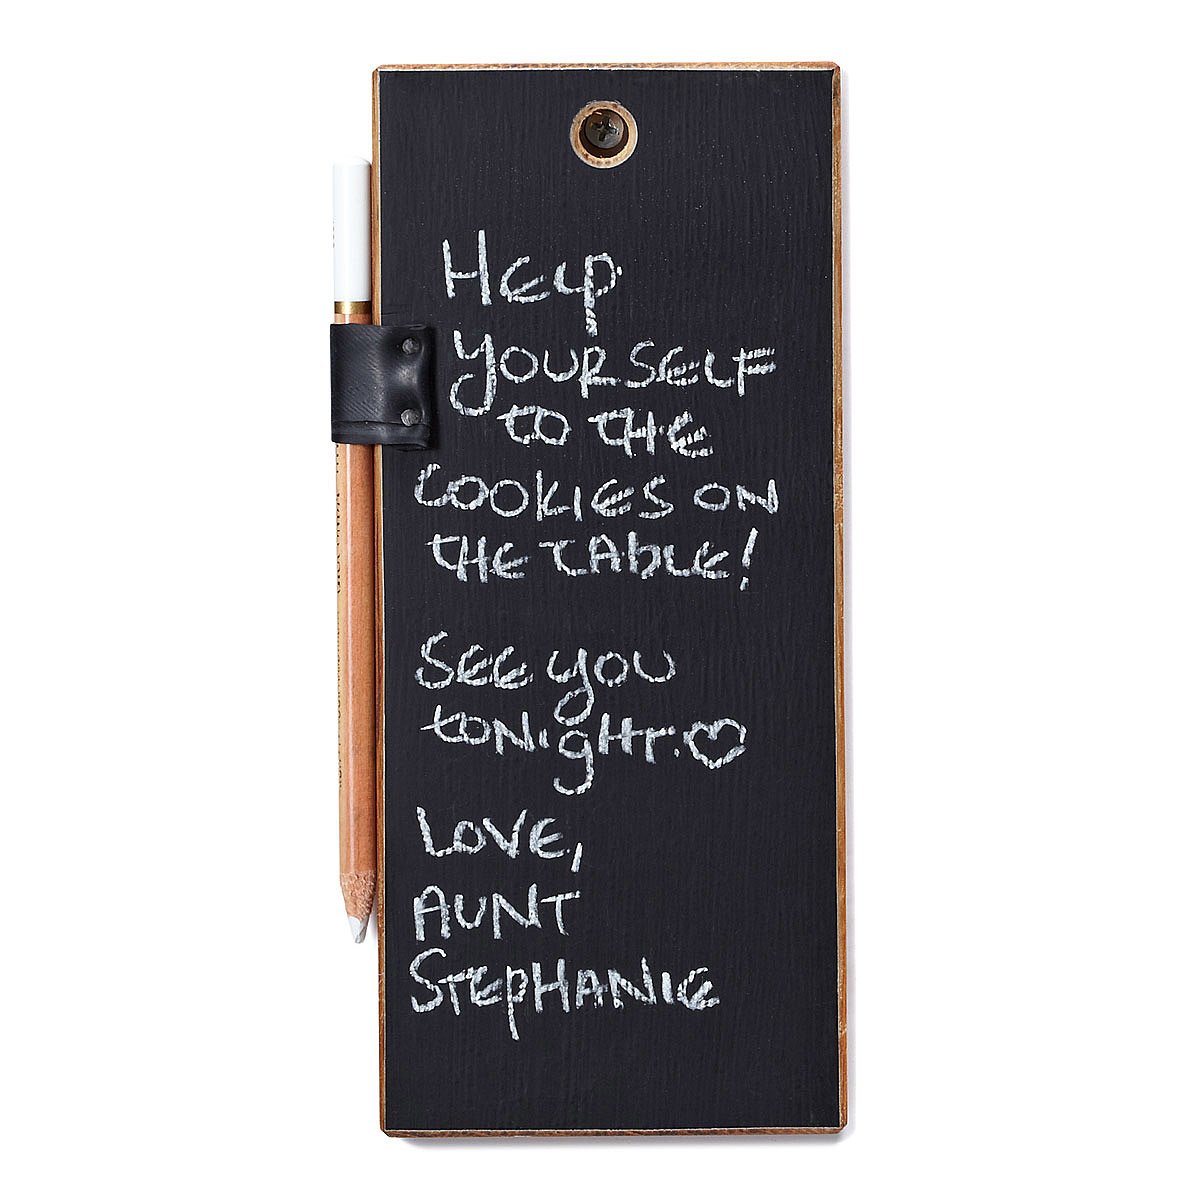 HELP
YOURSELF
TO THE
COOKIES ON
THE TABLE!
SEE YOU
TONIGHT. ♡
LOVE,
AUNT
STEPHANIE